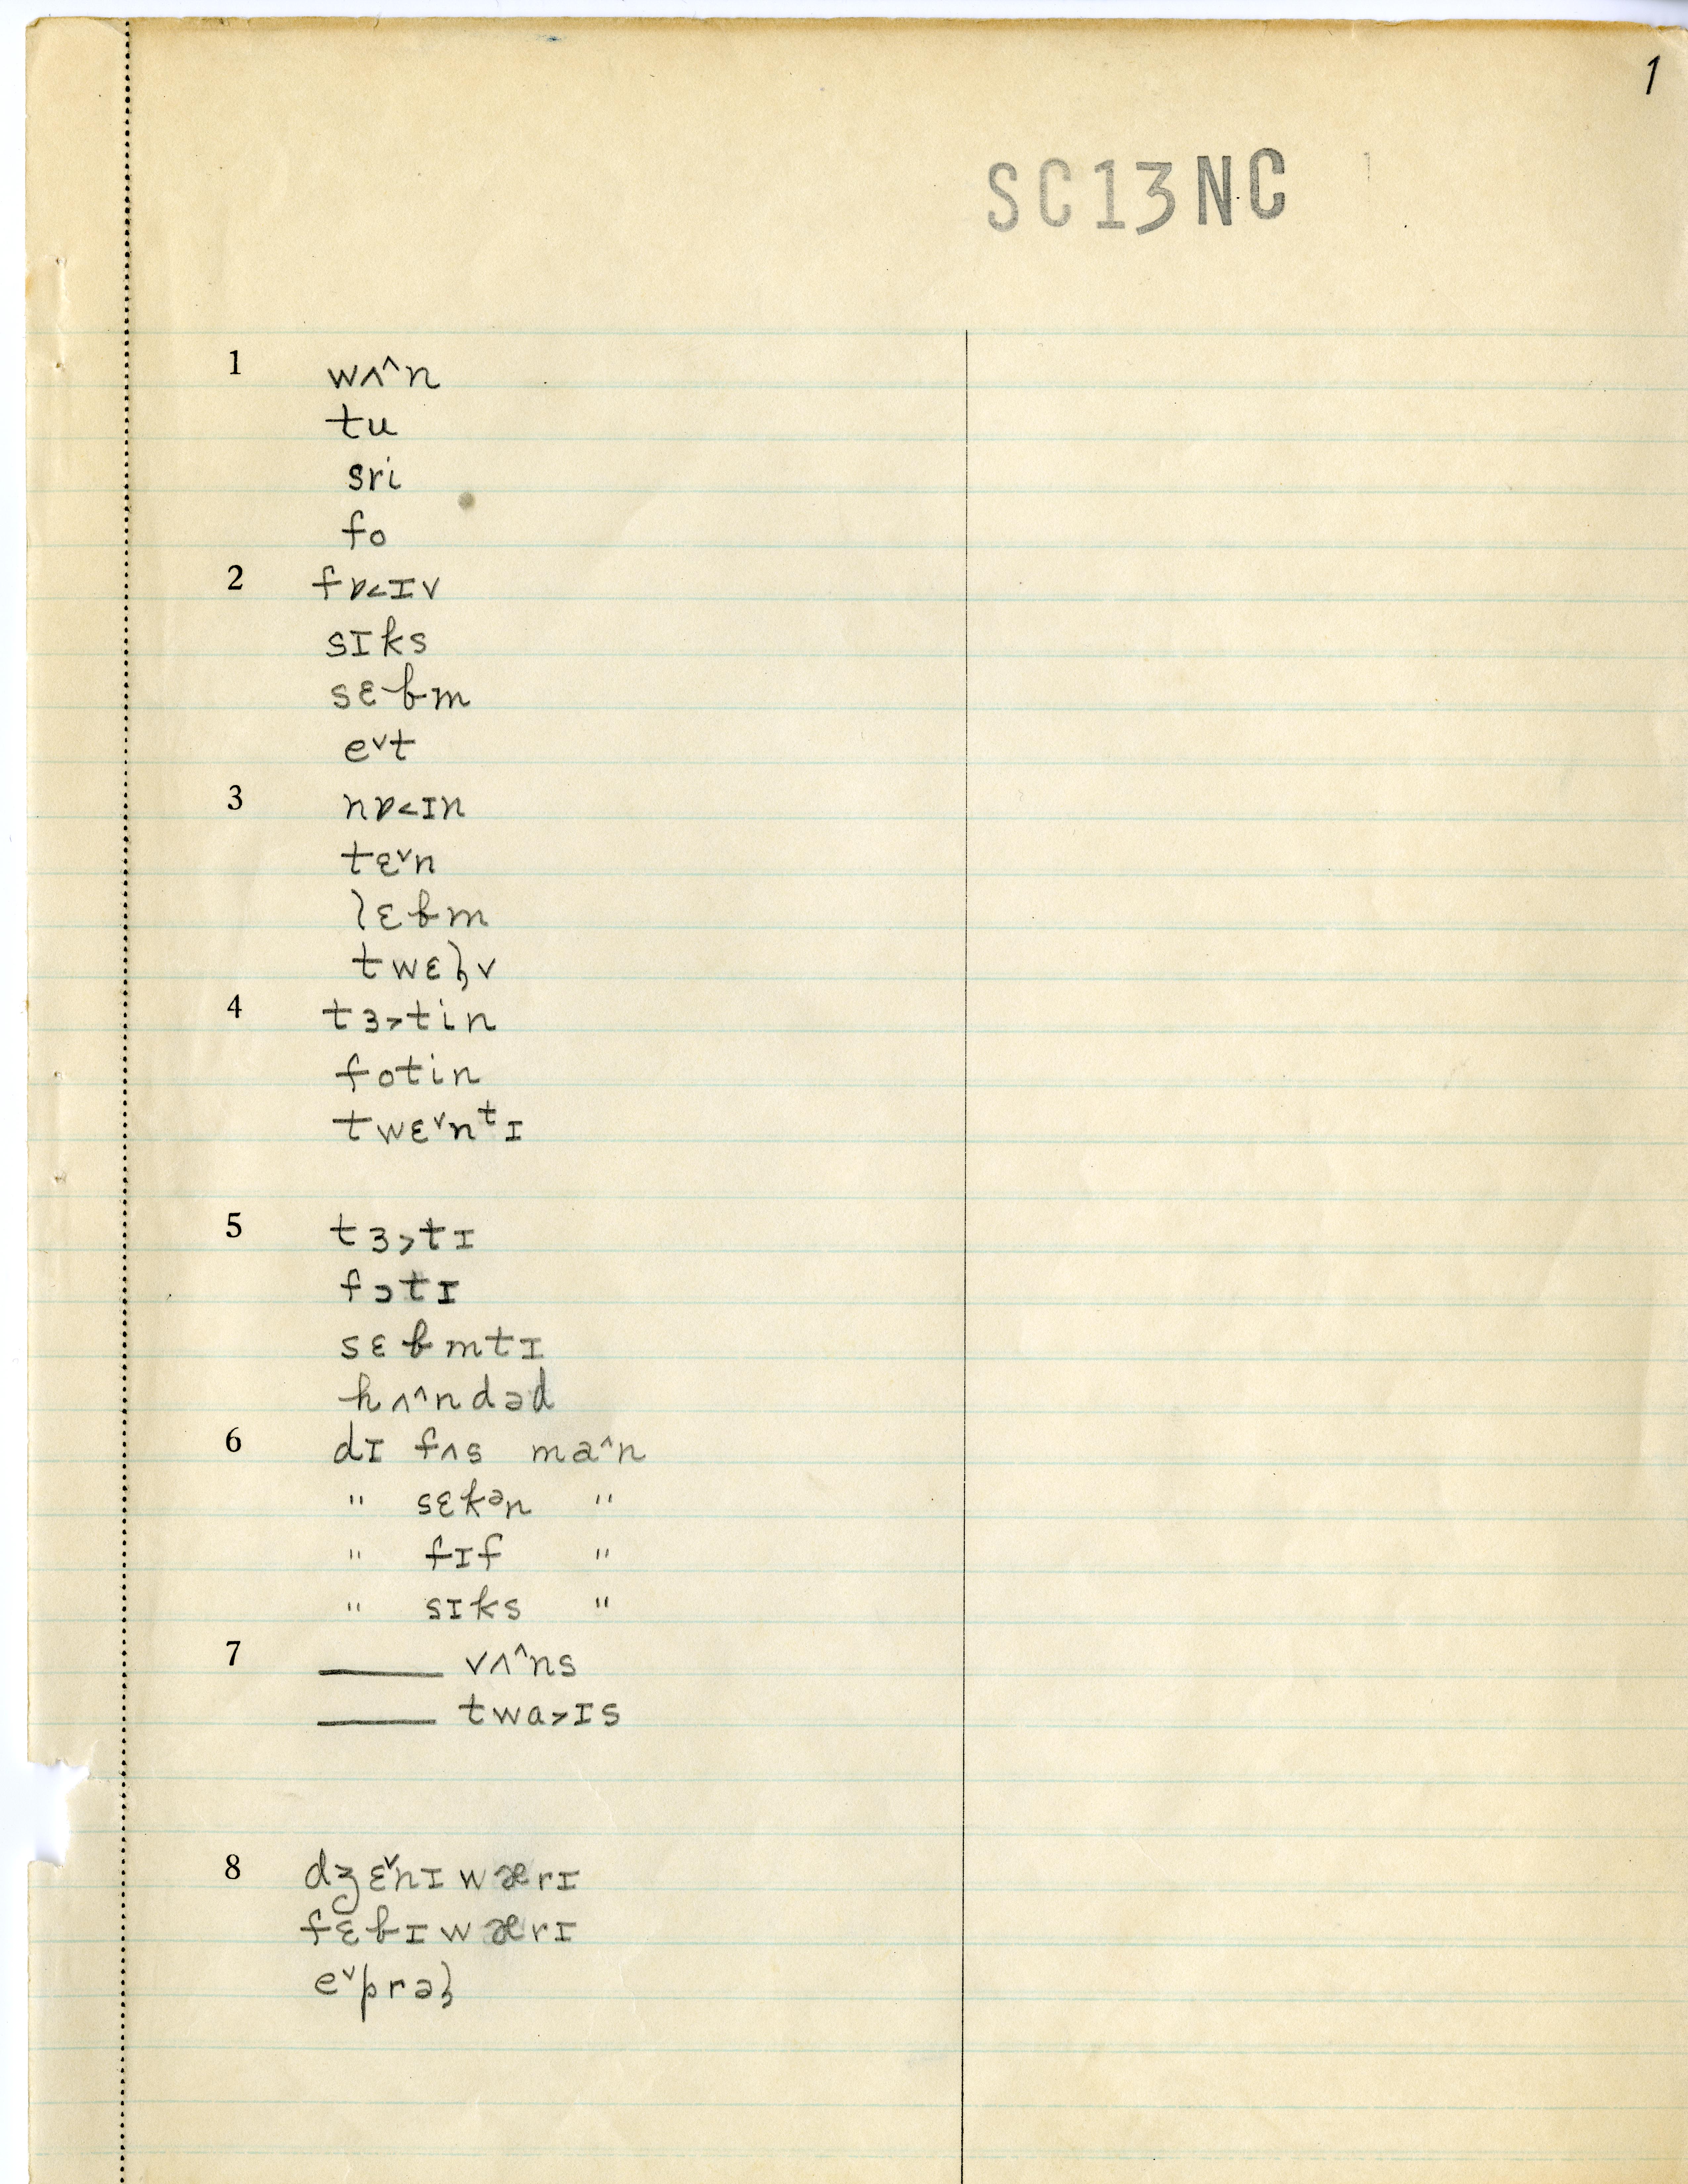 1
SC13NC
1 wʌ^n
tu
sri
fo
2 fɒ<ɪv
sɪks
sɛbm
e˅t
3 nɒ<ɪn
tɛ˅n
lɛbm
twɛɫv
4 tɜ>tin
fotin
twɛ˅nᵗɪ
5 tɜ>tɪ
fɔtɪ
sɛbmtɪ
hʌ^ndəd
6 dɪ fʌs ma^n
" sɛkᵊn "
" fɪf "
" sɪks "
7 ——— vʌ^ns
——— twa>ɪs
8 dʒɛ˅nɪwærɪ
fɛbɪwærɪ
e˅prəɫ